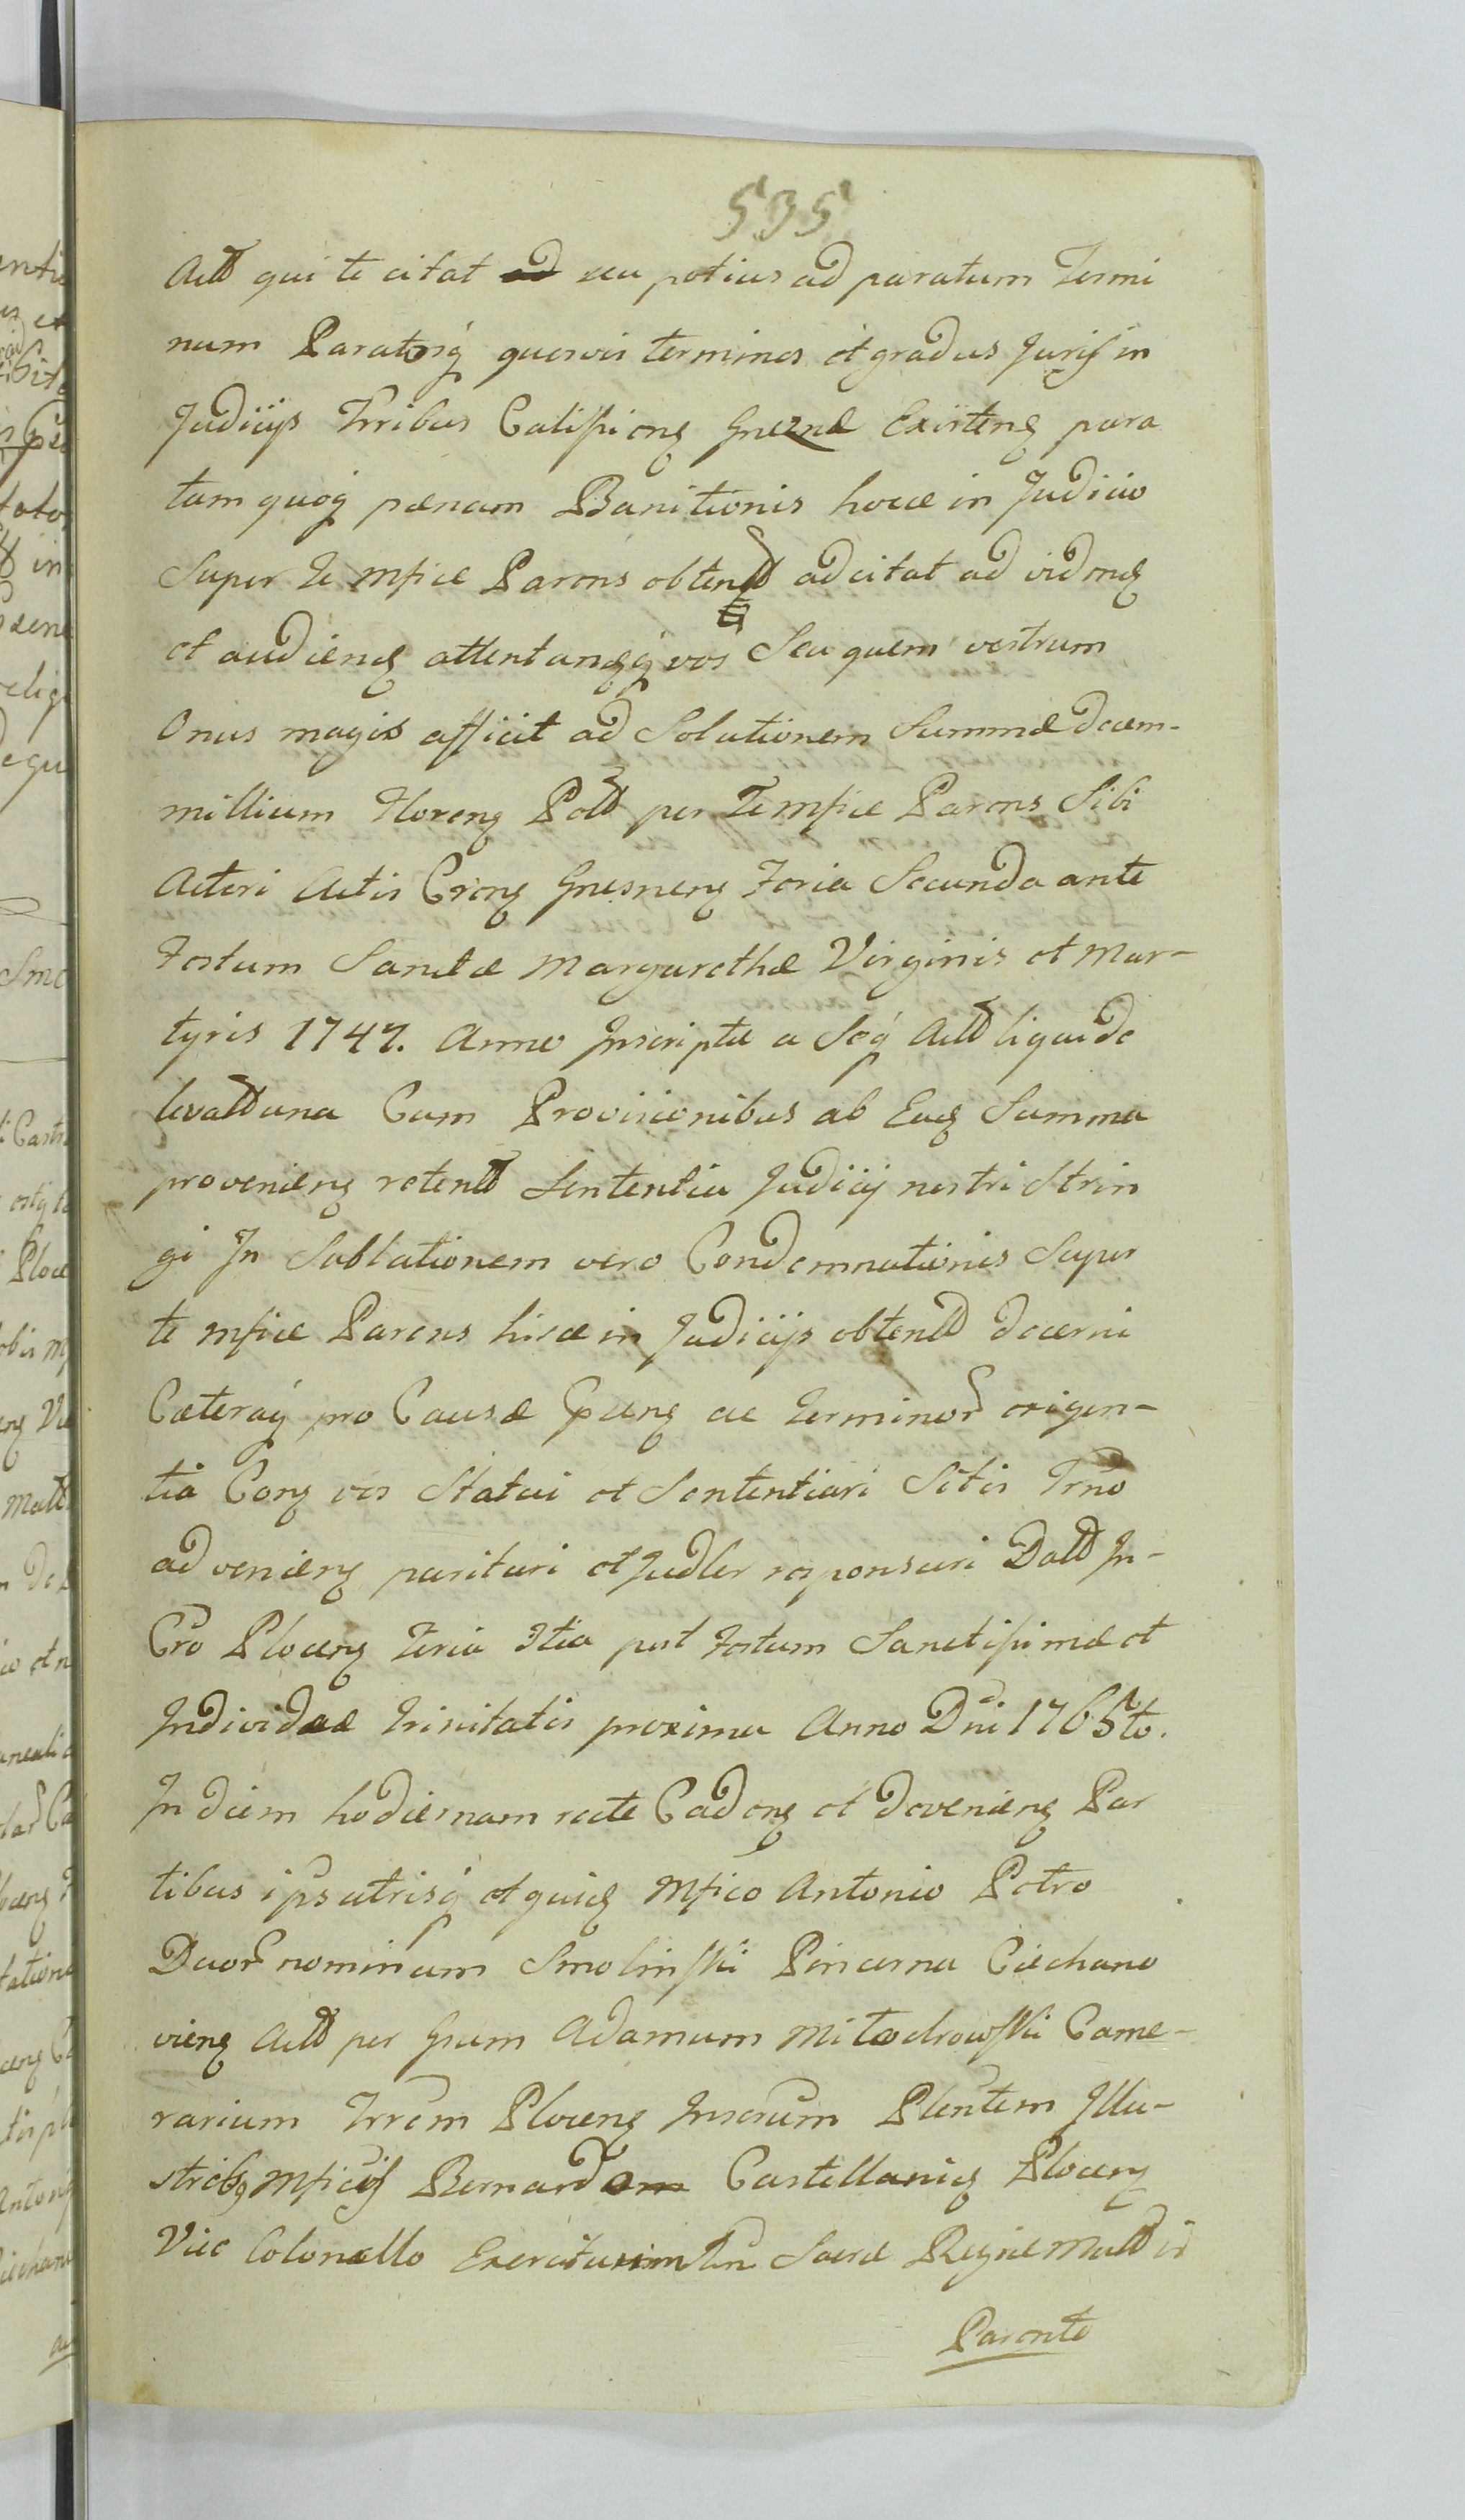 535
Actt qui te citat ad seu potius ad paratum Termi
num Paratosq quosvis terminos et gradus Juris in
Judicijs Trribus Calissiens Gnesnæ Existens para
tam quoq pænam Banitionis hocce in Judicio
Super Te Mfice Parens obtent adcitat ad videndg
et audiend attentandq vos Seu quem vestrum
Onus magis afficit ad Solutionem Summæ decem-
millium Floreng Poltt per Te Mfice Parens Sibi
Actori Actis Crens Gnesnens Feria Secunda ante
Festum Sanctæ Margarethæ Virginis et Mar-
tyris 1747. Anno Inscriptæ a Seq Actt liquide
levatt una Cum Provisionibus ab Eadg Summa
proveniens retentt Sententia Judicij nostri Strin
gi In Sublationem vero Condemnationis Super
te Mfice Parens hisce in Judicijs obtentt decerni
Cæteraq pro Causæ ac terminor exigen-
tia Cong vos Statui et Sententiari Sitis Trno
advenieng parituri et Judler responsuri Datt In-
Cro Ploceng Feria 3tia post Festum Sanctissimæ et
Individuæ Trinitatis proxima Anno Dni 1765to.
In diem hodiernam recte Cadeng et devenieng Par
tibus ips utrisq et quidg Mfico Antonio Petro
Duor nominum Smolinski Pincerna Ciechano
vieng Actt per Gsum Adamum Mitodrowski Came-
rarium Trrem Ploceng Inserum Plentem Illu-
stribg Mficis Bernardom Castellanidg Ploceng
Vice Colonello Exercituum Sacræ Regiæ Mattis
Parente